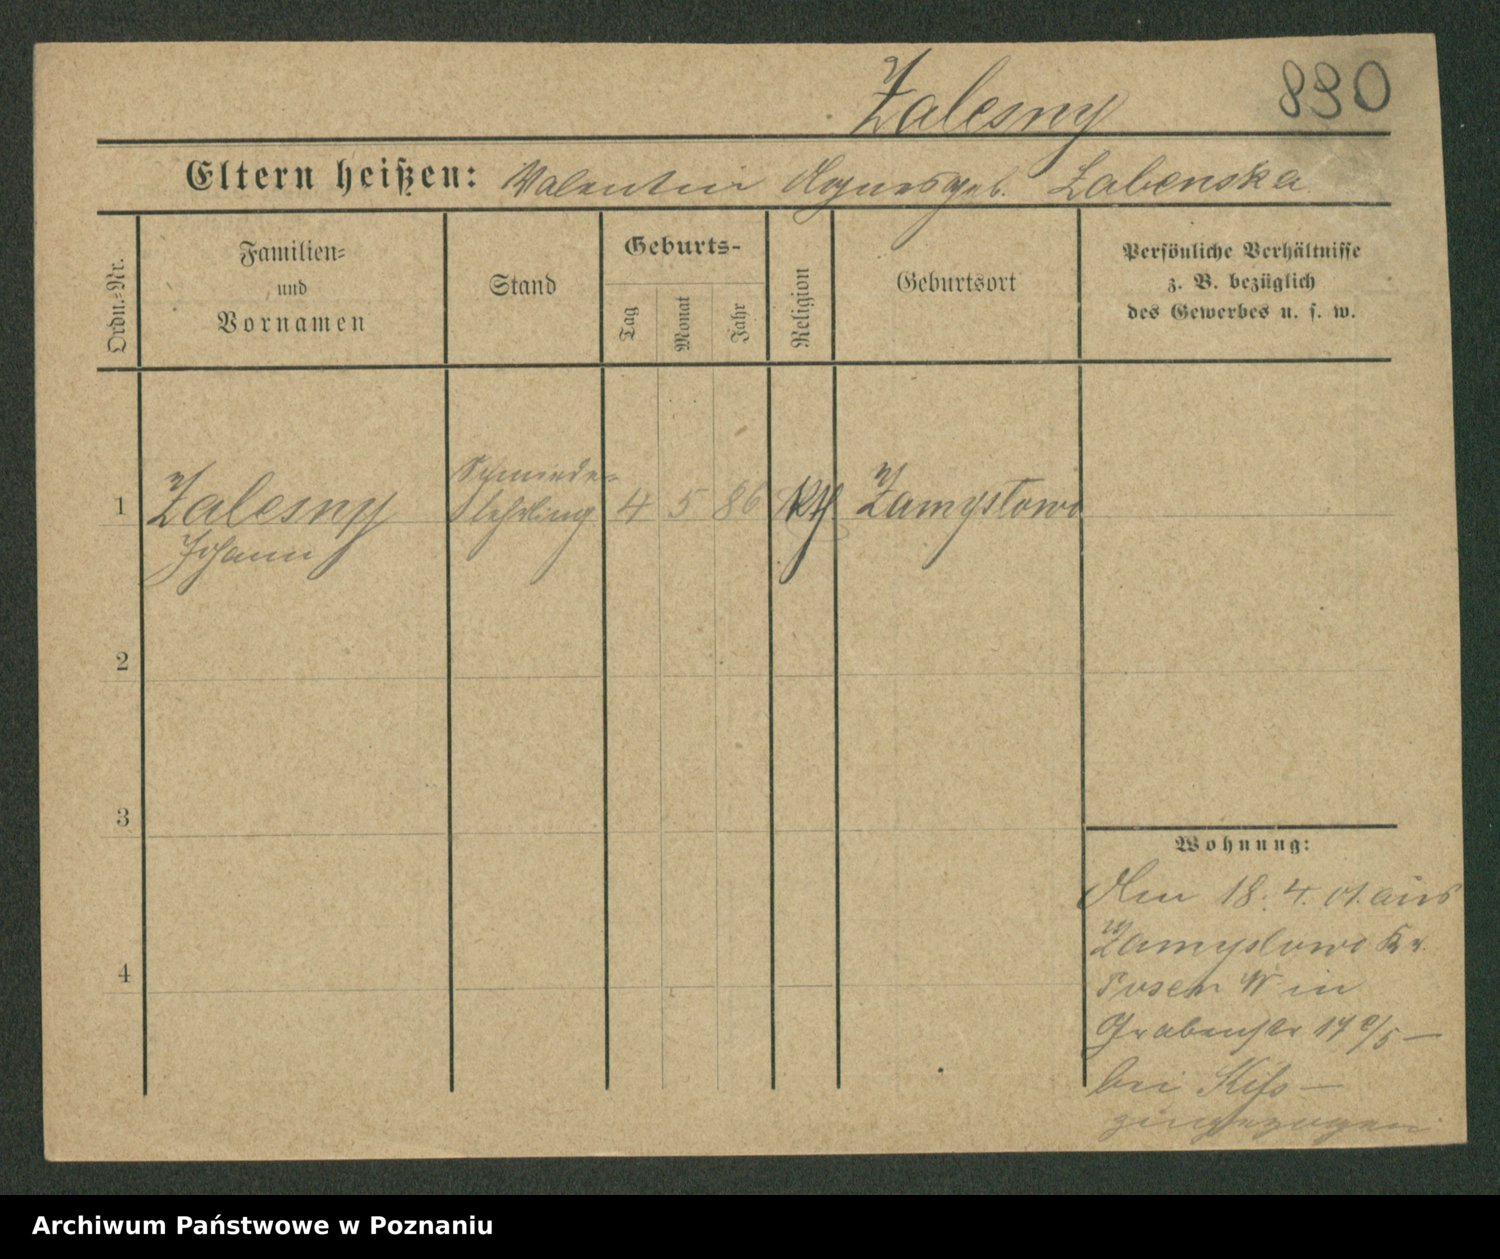 Zalesny
890
Eltern heißen: Valentin Agnes geb. Labenska
Ordn.-Nr.
Familien-
und
Vornamen
Stand
Geburts-
Tag
Monat
Jahr
Religion
Geburtsort
Persönliche Verhältnisse
z. B. bezüglich
des Gewerbes u. s. w.
1
Zalesny
Johann
Schmiede-
lehrling
4
5
86
kth
Zamysłowo
2
3
4
Wohnung:
Am 18. 4. 01. aus
Zamyslowo Kr.
Posen W in
Grabenstr 17
bei
zugezogen
Archiwum Państwowe w Poznaniu